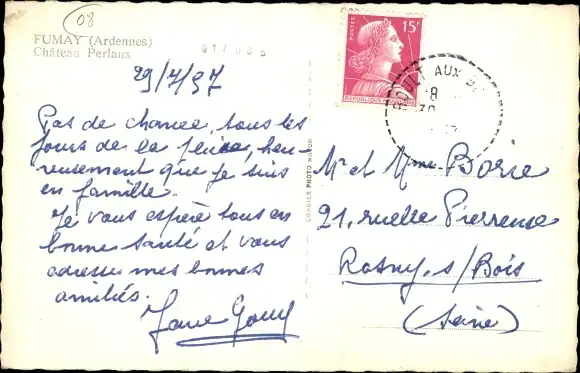 08
FUMAY (Ardennes)
Château Perlaux
29/7/57
Pas de chance, tous les
jours de la pluie, heu-
reusement que je suis
en famille.
Je vous espère tous en
bonne santé et vous
adresse mes bonnes
amitiés.
POSTES
15F
REPUBLIQUE FRANÇAISE
AULT AUX
8
30
Mr et Mme Borre
21, ruelle Pierreuse
Rosny s/Bois
(Seine)